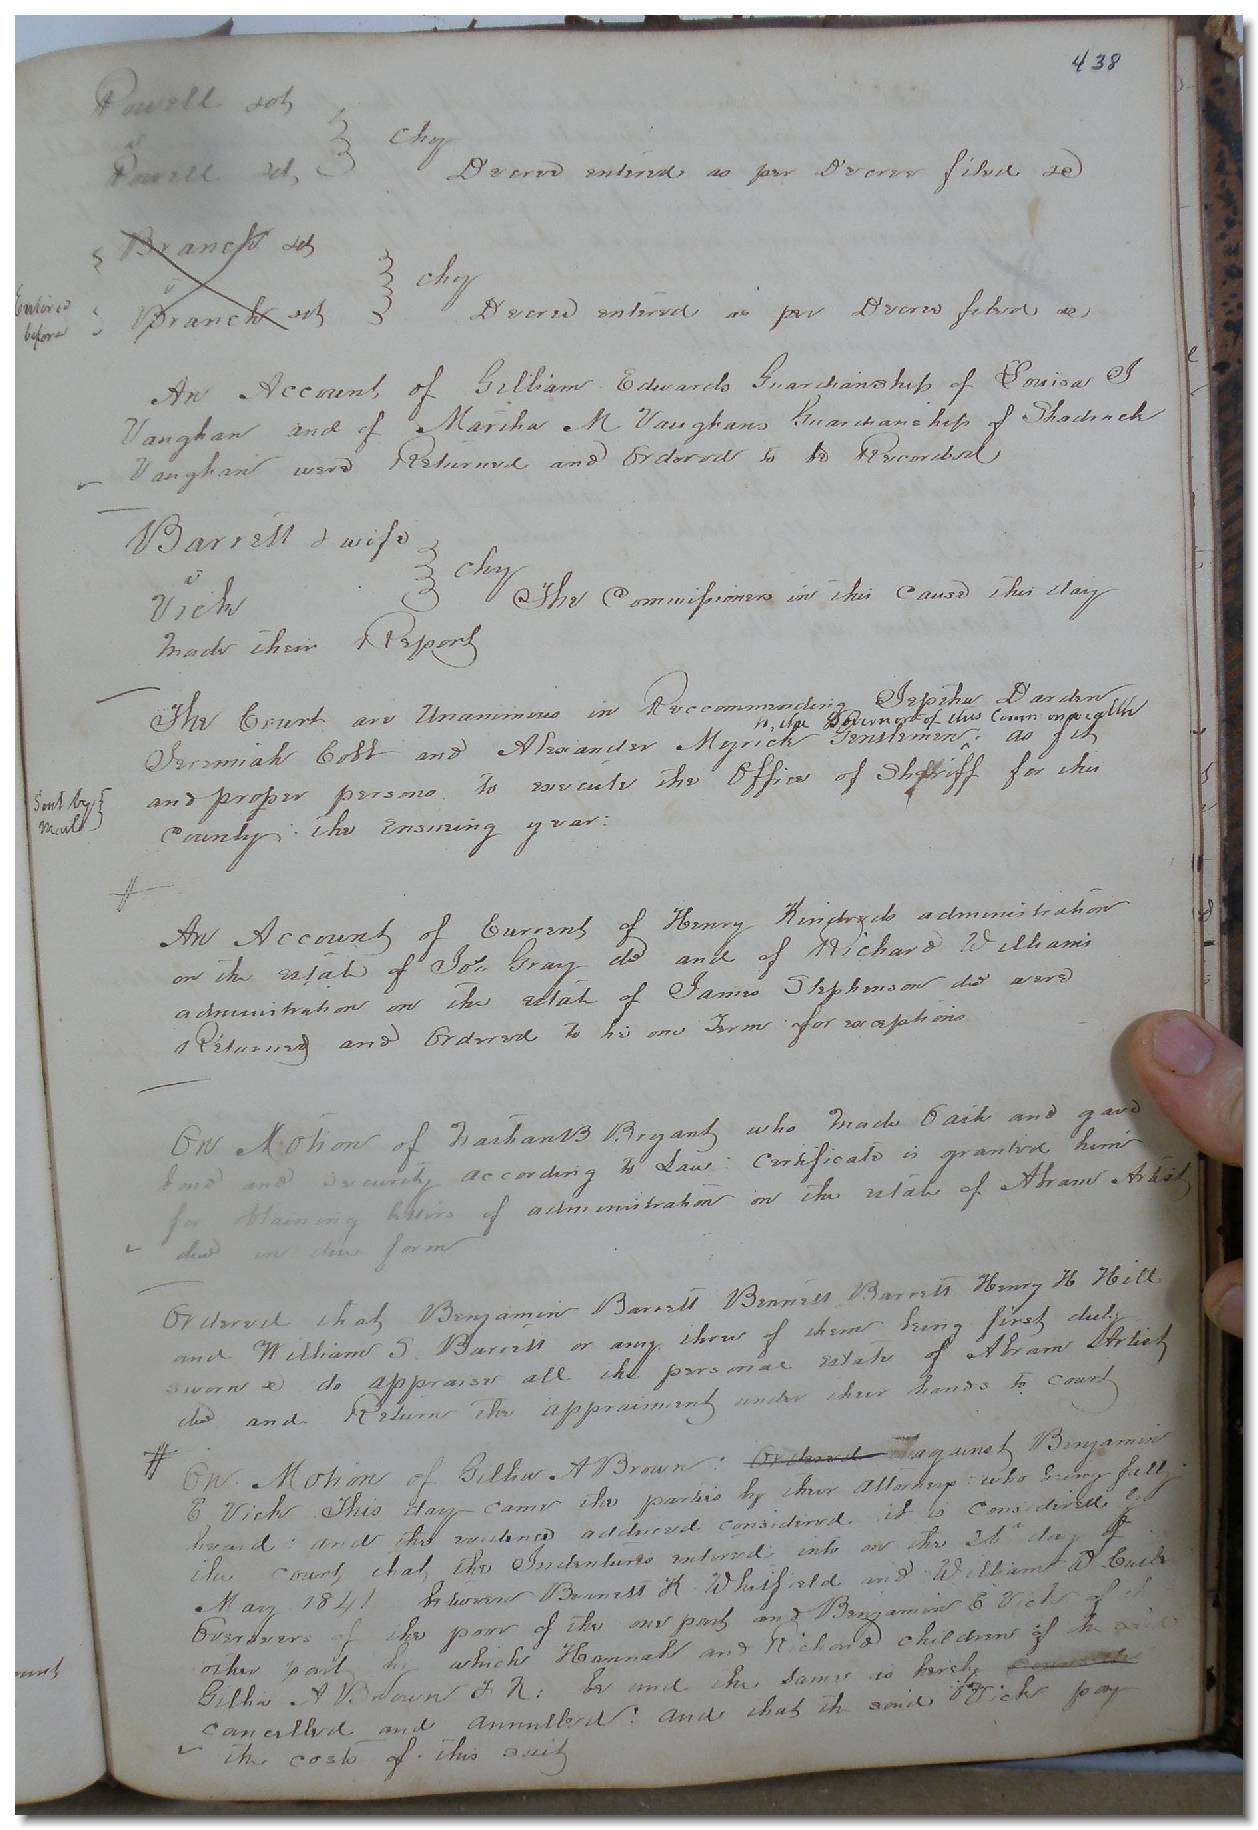 438
Powell &als
v
Powell &als
Chy
Decree entered as per Decree filed &c
Branch &als
v
Branch &als
Entered
before
Chy
Decree entered as per Decree filed &c
An Account of Gilliam Edwards Guardianship of Louisa J
Vaughan and of Martha M Vaughans Guardianship of Shadrack
Vaughan were Returned and Ordered to be Recorded
Barrett & wife
v
Vick
Chy
The Commissioners in this cause this day
made their Report
The Court are Unanimous in Reccommending Jeptha Darden
to the Governor of this Commonwealth
Jeremiah Cobb and Alexander Myrick Gentlemen as fit
and proper persons to execute the Office of Sheriff for this
Sent by
Mail
County: the ensuing year:
An Account of Current of Henry Kindreds administration
on the estate of Jos. Gray decd and of Richard Williams
administration on the estate of James Stephenson decd were
Returned and Ordered to lie one Term for exceptions
On Motion of Nathan B Bryant who made Oath and gave
bond and security according to Law: Certificate is granted him
for obtaining letters of administration on the estate of Abram Artist
decd in due form
Ordered that Benjamin Barrett Bennett Barrett Henry H Hill
and William S. Barrett or any three of them being first duly
sworn &c do appraise all the personal estate of Abram Artist
decd and Return the appraiment under their hands to court
On Motion of Gillia A Brown: Ordered against Benjamin
E Vick This day came the parties by their attorneys who being fully
heard: and the evidence adduced considered. it is considered by
the court that the Indentures entered into on the 26th day of
May 1841 between Bennett K Whitfield and William D
Overseers of the poor of the one part and Benjamin E Vick of the
other part by which Hannah and Richard children of the said
Gillia A Brown F N: be and the same is hereby
cancelled and annulled: and that the said Vick pay
the costs of this suit